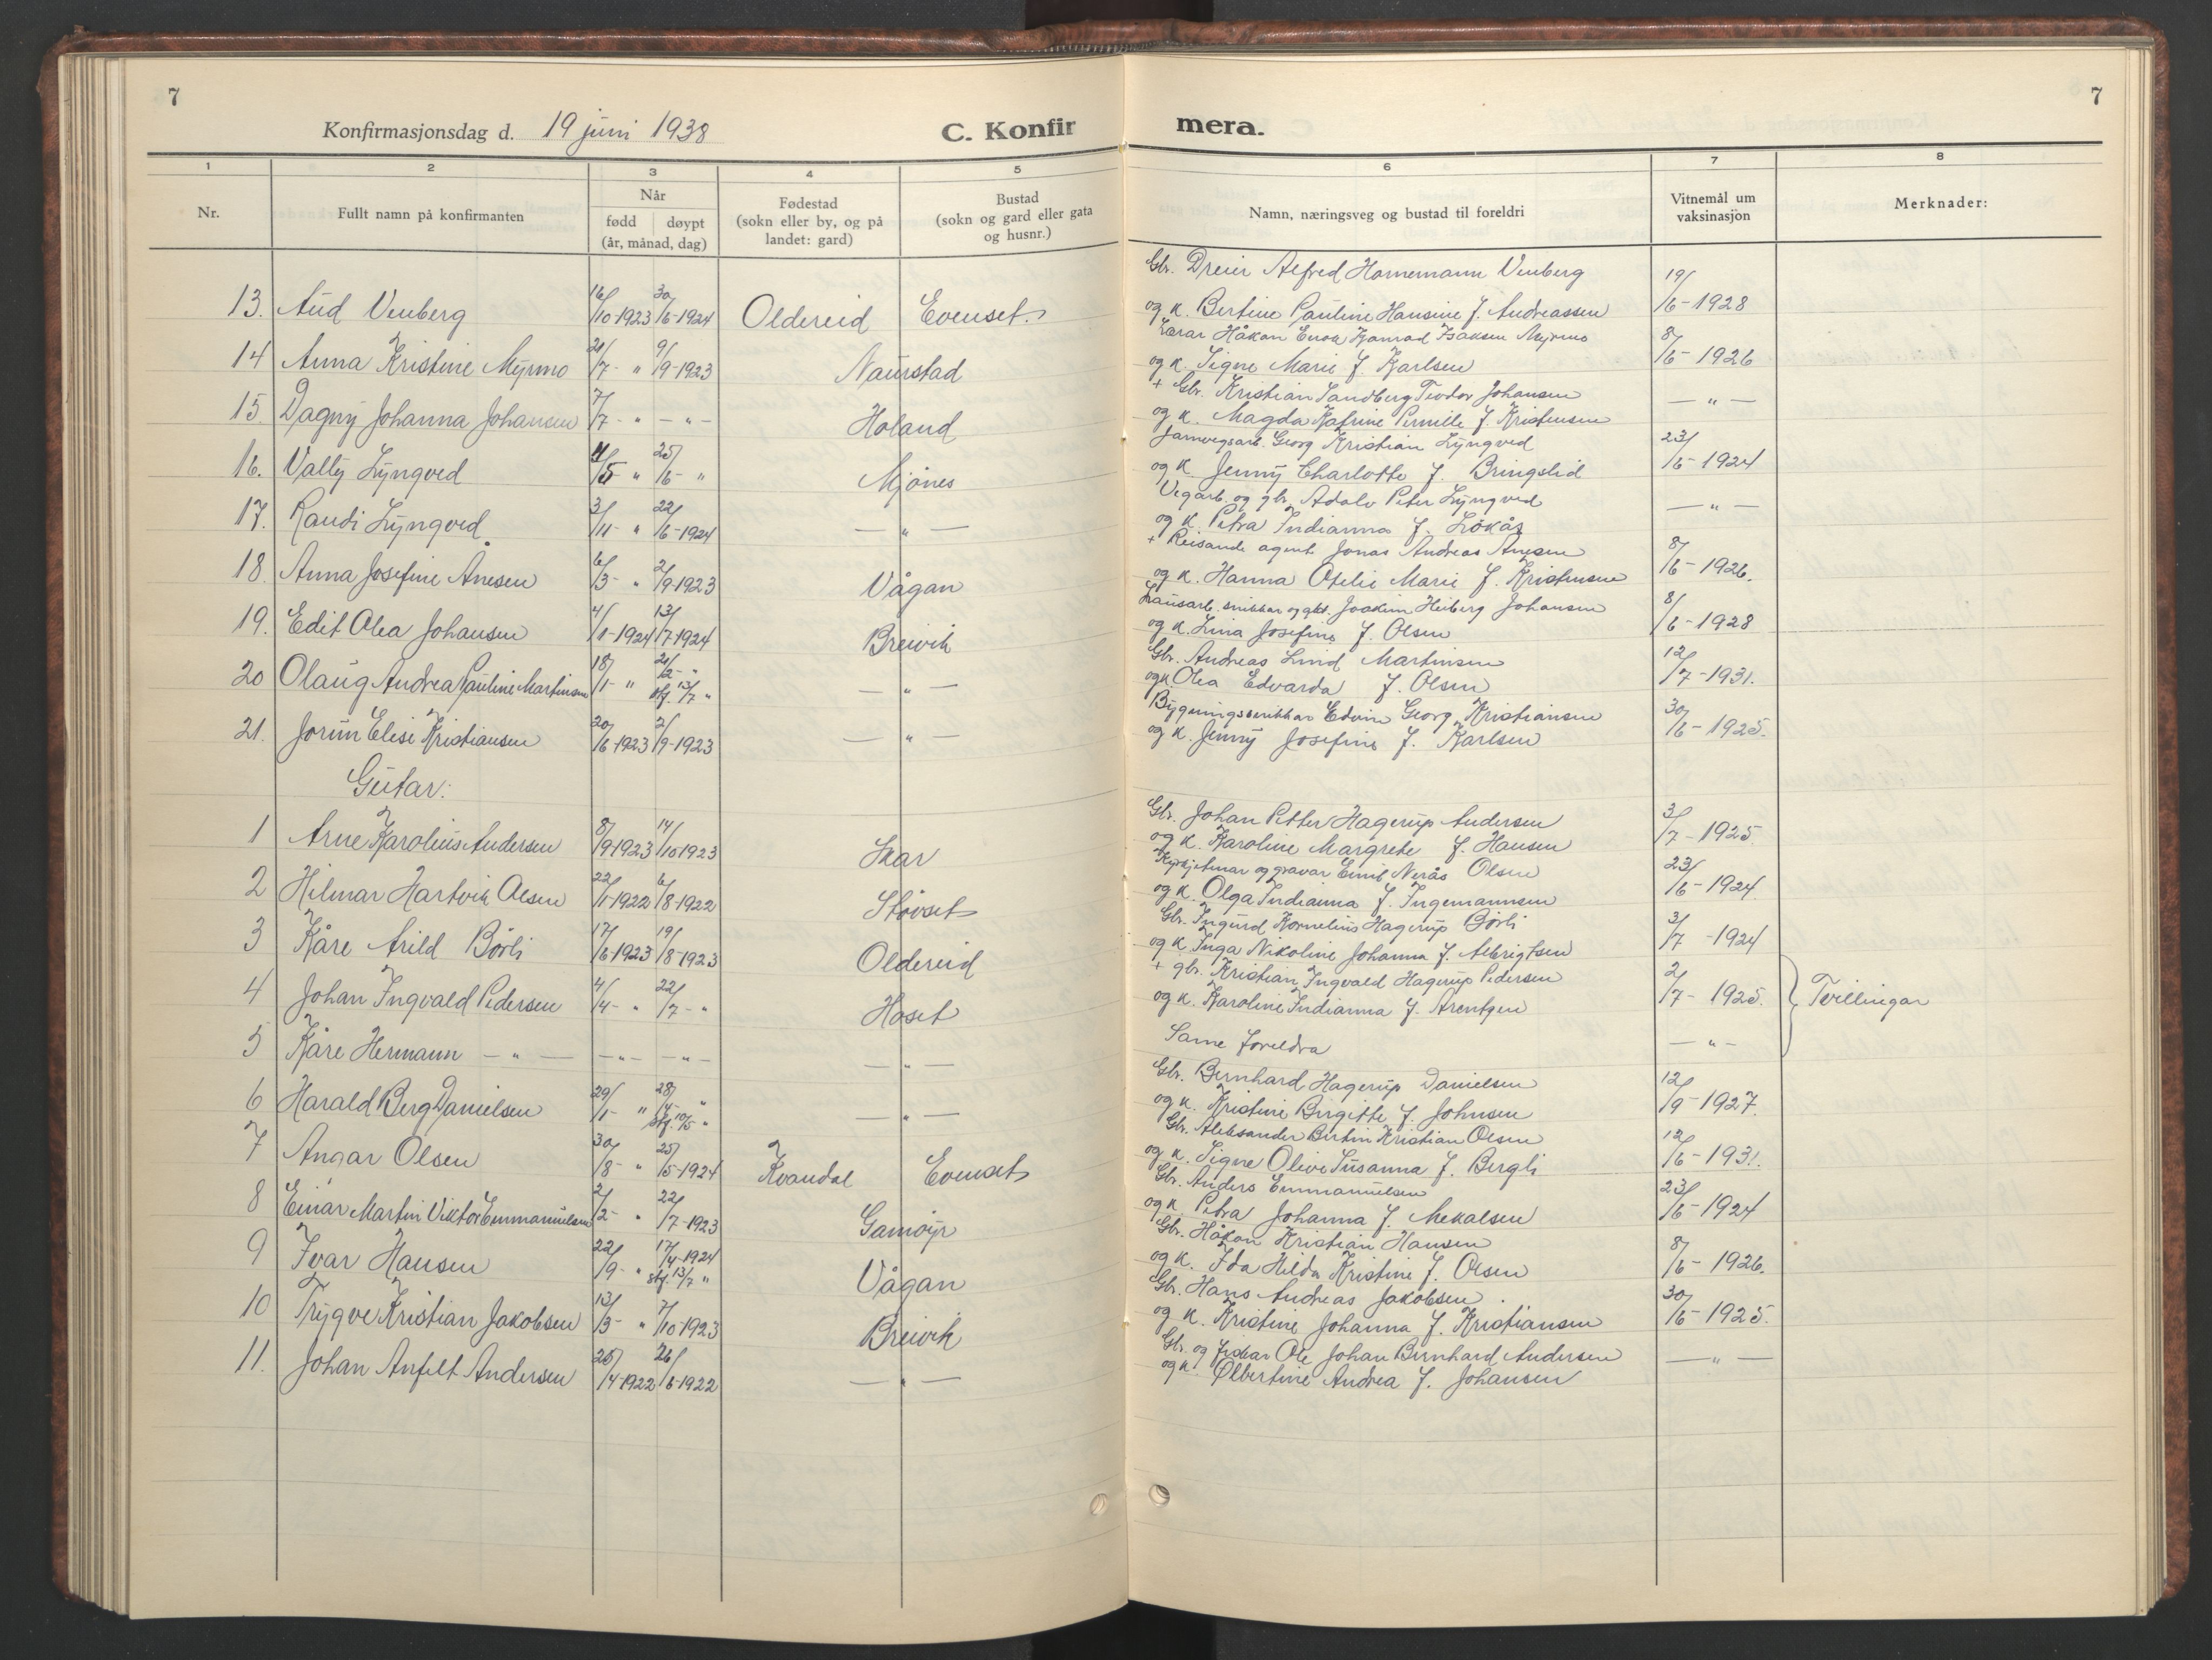 7
Konfirmasjonsdag d. 19 juni 1938
C. Konfir
mera.
7
1 2 3 4 5 6 7 8
Nr.
Fullt namn på konfirmanten
Når
fødd døypt
(år, månad, dag)
Fødestad
(sokn eller by, og på
landet: gard)
Bustad
(sokn og gard eller gata
og husnr.)
Namn, næringsveg og bustad til foreldri
Vitnemål um
vaksinasjon
Merknader:
Gbr. Dreier Alfred Hornemann Venberg
13. Aud Venberg 16/10-1923 30/6-1924 Oldereid Evenset. og k. Bertine Pauline Hansine f. Andreassen 19/6-1928
Lærar Håkon Enok Konrad Isaksen Myrmo
14 Anna Kristine Myrmo 21/7- " 9/9-1923 Naurstad og k. Signe Marie f. Karlsen 8/6-1926
+ Gbr. Kristian Sandberg Teodor Johansen
15. Dagny Johanna Johansen 7/7- " — " — Holand og k. Magda Katrine Pernille f. Kristensen — " —
Jarnvegsarb. Georg Kristian Lyngved
16. Vally Lyngved 11/5 " 25/6- " Mjönes og k. Jenny Charlotte f. Bringslid 23/6-1924
Vegarb. og gbr. Adolv Peter Lyngved
17. Randi Lyngved 3/11- " 22/6-1924 — " — og k. Petra Indianna f. Lökås — " —
+ Reisande agent Jonas Andreas Anesen
18. Anna Josefine Anesen 6/3- " 2/9-1923 Vågan og k. Hanna Otelie Marie f. Kristensen 8/6-1926.
snikkar og gbr. Joakim Heiberg Johansen
19. Edit Olea Johansen 4/1-1924 13/7-1924 Breivik og k. Lina Josefine f. Olsen 8/6-1928
Gbr. Andreas Lind Martinsen
20 Olaug Andrea Pauline Martinsen 18/1- " 21/2- " stf. 13/7 " — " — og k. Olea Edvarda f. Olsen 12/7-1931.
Bygningssnikkar Edvin Georg Kristiansen
21. Jorun Elise Kristiansen 20/6-1923 2/9-1923 — " — og k. Jenny Josefine f. Karlsen 30/6-1925.
Gutar:
Gbr. Johan Petter Hagerup Andersen
1 Arne Karolius Andersen 8/9-1923 14/10-1923 Skar og k. Karoline Margrete f. Hansen 3/7-1925.
Kyrkjetenar og gravar Emil Nerås Olsen
2 Hilmar Hartvik Olsen 22/1-1922 6/8-1922 Støvset og k. Olga Indianna f. Ingemannsen 23/6-1924
Gbr. Ingurd Kornelius Hagerup Börli
3 Kåre Arild Börli 17/6-1923 19/8-1923 Oldereid og k. Inga Nikoline Johanna f. Albrigtsen 3/7-1924
+ gbr. Kristian Ingvald Hagerup Pedersen
4 Johan Ingvald Pedersen 4/4- " 22/7- " Hoset og k. Karoline Indianna f. Arentzen 2/7-1925. Tvillingar
5 Kåre Hermann — " — — " — — " — — " — Same foreldra — " —
Gbr. Bernhard Hagerup Danielsen
6 Harald Berg Danielsen 29/1- " 28/4- " stf. 10/5 " — " — og k. Kristine Birgitte f. Johnsen 12/9-1927.
Gbr. Aleksander Bertin Kristian Olsen
7 Angar Olsen 30/8- " 25/5-1924 Kvandal Evenset og k. Signe Olive Susanna f. Bergli 12/6-1931.
Gbr. Anders Emmanuelsen
8 Einar Martin Viktor Emmanuelsen 2/2- " 22/7-1923 Gamöyr og k. Petra Johanna f. Mekalsen 23/6-1924
Gbr. Håkon Kristian Hansen
9 Ivar Hansen 22/9- " 17/4-1924 stf. 13/7 " Vågan og k. Ida Hilda Kristine f. Olsen 8/6-1926.
Gbr. Hans Andreas Jakobsen
10 Trygve Kristian Jakobsen 13/3- " 7/10-1923 Breivik og k. Kristine Johanna f. Kristiansen 30/6-1925.
Gbr. og fiskar Ole Johan Bernhard Andersen
11. Johan Anfelt Andersen 25/4-1922 26/6-1922 — " — og k. Olbertine Andrea f. Johansen — " —